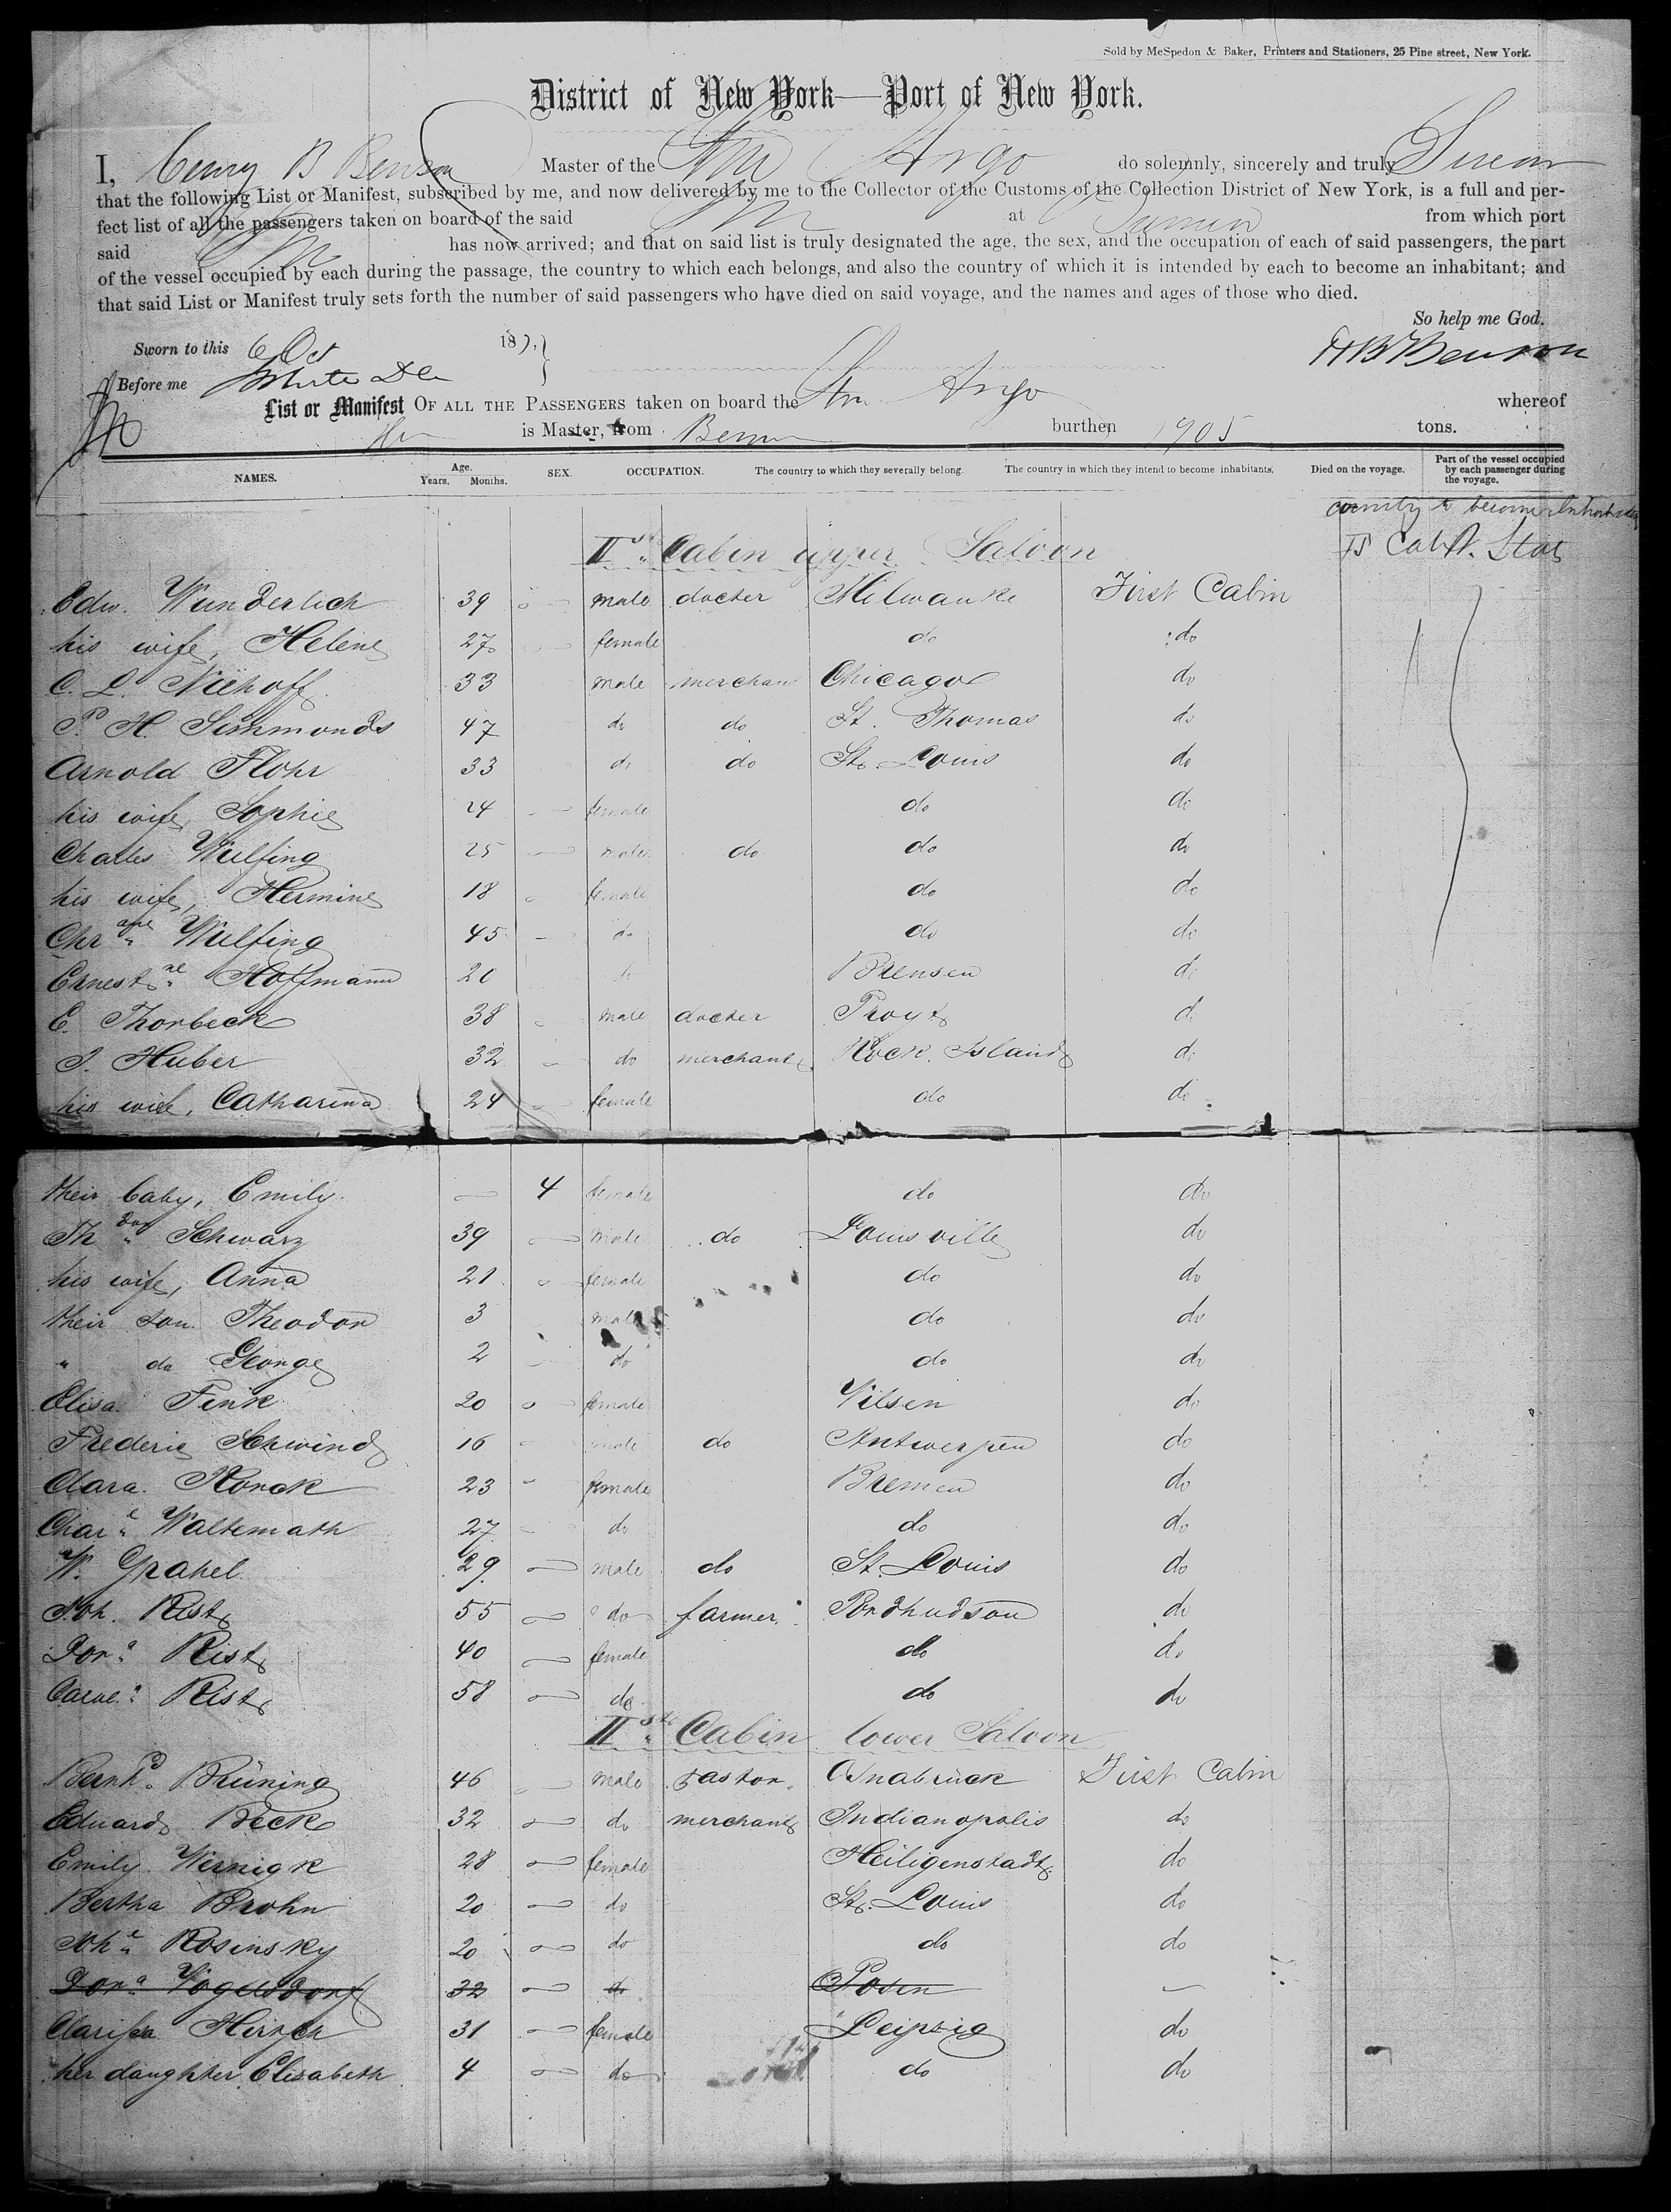 Sold by McSpedon & Baker, Printers and Stationers, 25 Pine street, New York.
District of New York—Port of New York.
I, Henry B Benson Master of the Stm Argo do solemnly, sincerely and truly Swear
that the following List or Manifest, subscribed by me, and now delivered by me to the Collector of the Customs of the Collection District of New York, is a full and per-
fect list of all the passengers taken on board of the said Stm at Bremen from which port
said Stm has now arrived; and that on said list is truly designated the age, the sex, and the occupation of each of said passengers, the part
of the vessel occupied by each during the passage, the country to which each belongs, and also the country of which it is intended by each to become an inhabitant; and
that said List or Manifest truly sets forth the number of said passengers who have died on said voyage, and the names and ages of those who died.
So help me God.
Sworn to this 6 Oct 187
HB Benson
Before me
List or Manifest OF ALL THE PASSENGERS taken on board the Stm Argo whereof
is Master, from Bremen burthen 1905 tons.
NAMES. Age. Years. Months. SEX. OCCUPATION. The country to which they severally belong. The country in which they intend to become inhabitants. Died on the voyage. Part of the vessel occupied by each passenger during the voyage.
country to become Inhabitants
II Cabin upper Saloon
Edw. Wunderlich 39 male docter Milwauke First Cabin
his wife, Helene 27 female do do
C. L. Niehoff 33 male merchan Chicago do
P. H. Simmonds 47 do do St. Thomas do
Arnold Flohr 33 do do St. Louis do
his wife, Sophie 24 female do do
Charles Wulfing 25 male do do do
his wife, Hermine 18 female do do
Chr ane Wulfing 45 do do do
Ernest ne Hoffmann 20 do Bremen do
E. Thorbeck 38 male docter Troy do
J. Huber 32 do merchant Rock Island do
his wife, Catharina 24 female do do
their baby, Emily 4 female do do
Th dor Schwarz 39 male do Louisville do
his wife, Anna 21 female do do
their son Theodor 3 male do do
" do George 2 do do do
Elisa Fink 20 female Vilsen do
Frederic Schwind 16 male do Antwerpen do
Clara Konck 23 female Bremen do
Char e Waltemath 27 do do do
W. Grahel 29 male do St. Louis do
Joh. Rist 55 do farmer Pordhudson do
Dor a Rist 40 female do do
Carol e Rist 58 do do do
II Cabin lower Saloon
Bernh d Brüning 46 male pastor Osnabrück First Cabin
Eduard Beck 32 do merchant Indianopolis do
Emily Wernigk 28 female Heiligenstadt do
Bertha Brohn 20 do St. Louis do
Joh e Rosinsky 20 do do do
Dor a Vogelsdorf 32 do Posen
Clarissa Hirsch 31 female Leipzig do
her daughter Elisabeth 4 do do do